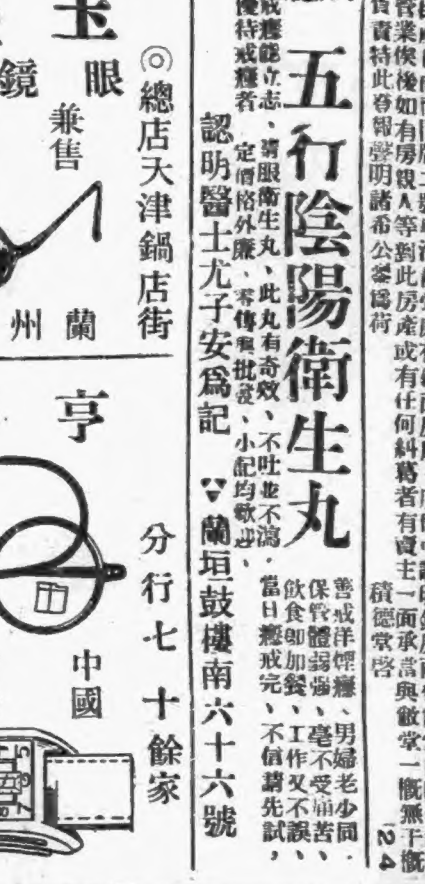 管業俟後如有房親人等對此房產或有任何糾葛者有賣主一面承當與敝堂一概無干概
負責特此登報聲明諸希公鑒為荷
積德堂啓
24
五行陰陽衛生丸
善戒洋煙癮、男婦老少同、
保管體弱強、毫不受痛苦、
飲食即加餐、工作又不誤、
當日癮戒完、不信請先試，
戒癮能立志、請服衛生丸、此丸有奇效、不吐並不瀉、
優待戒癮者、定價格外廉、零售與批發、小記均歡迎、
認明醫士尤子安為記
蘭垣鼓樓南六十六號
◎總店天津鍋店街
分行七十餘家
玉
眼鏡
兼售
蘭州
亨
中國